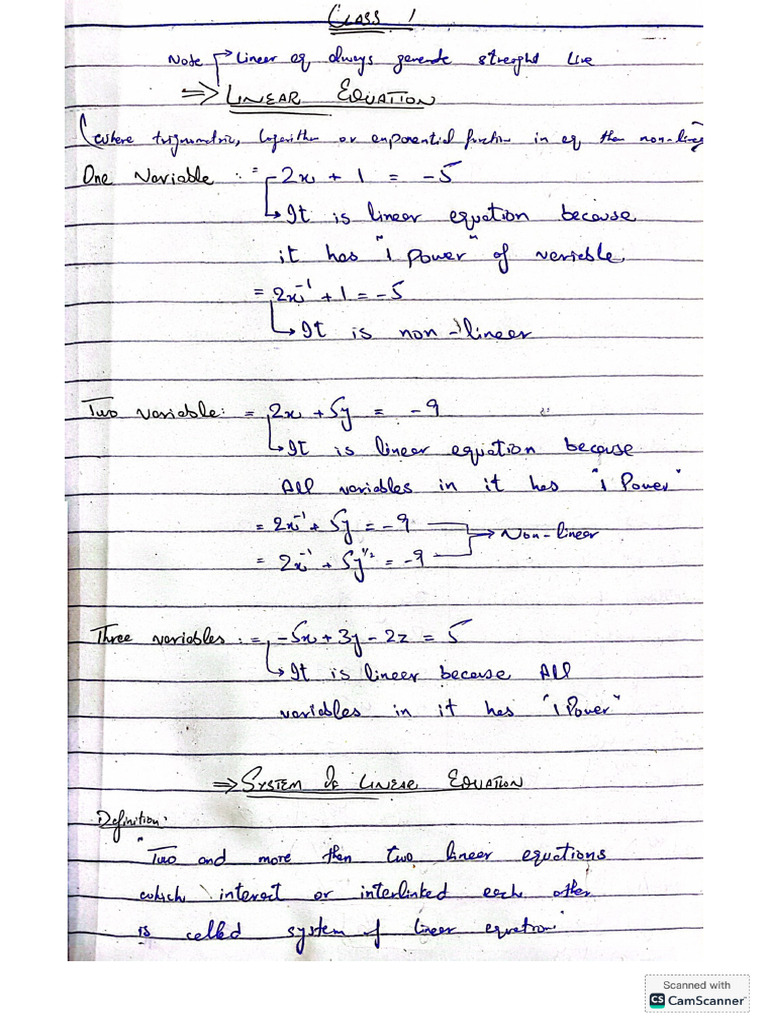 Class 1
Note → Linear eq always generate streight line
⇒ LINEAR EQUATION
(where trignometric, logarithm or exponential function in eq then non-linear
One Variable := 2x + 1 = -5
↳ It is linear equation because
it has "1 power" of variable.
= 2x⁻¹ + 1 = -5
↳ It is non-linear
Two variable: = 2x + 5y = -9
↳ It is linear equation because
All variables in it has "1 Power"
= 2x⁻¹ + 5y = -9 → Non-linear
= 2x⁻¹ + 5y^1/2 = -9
Three variables := -5x + 3y - 2z = 5
↳ It is lineer because All
variables in it has "1 Power"
⇒ SYSTEM OF LINEAR EQUATION
Definition:
"Two and more then two linear equations
which interect or interlinked each other
is called system of linear equation"
Scanned with
CS CamScanner